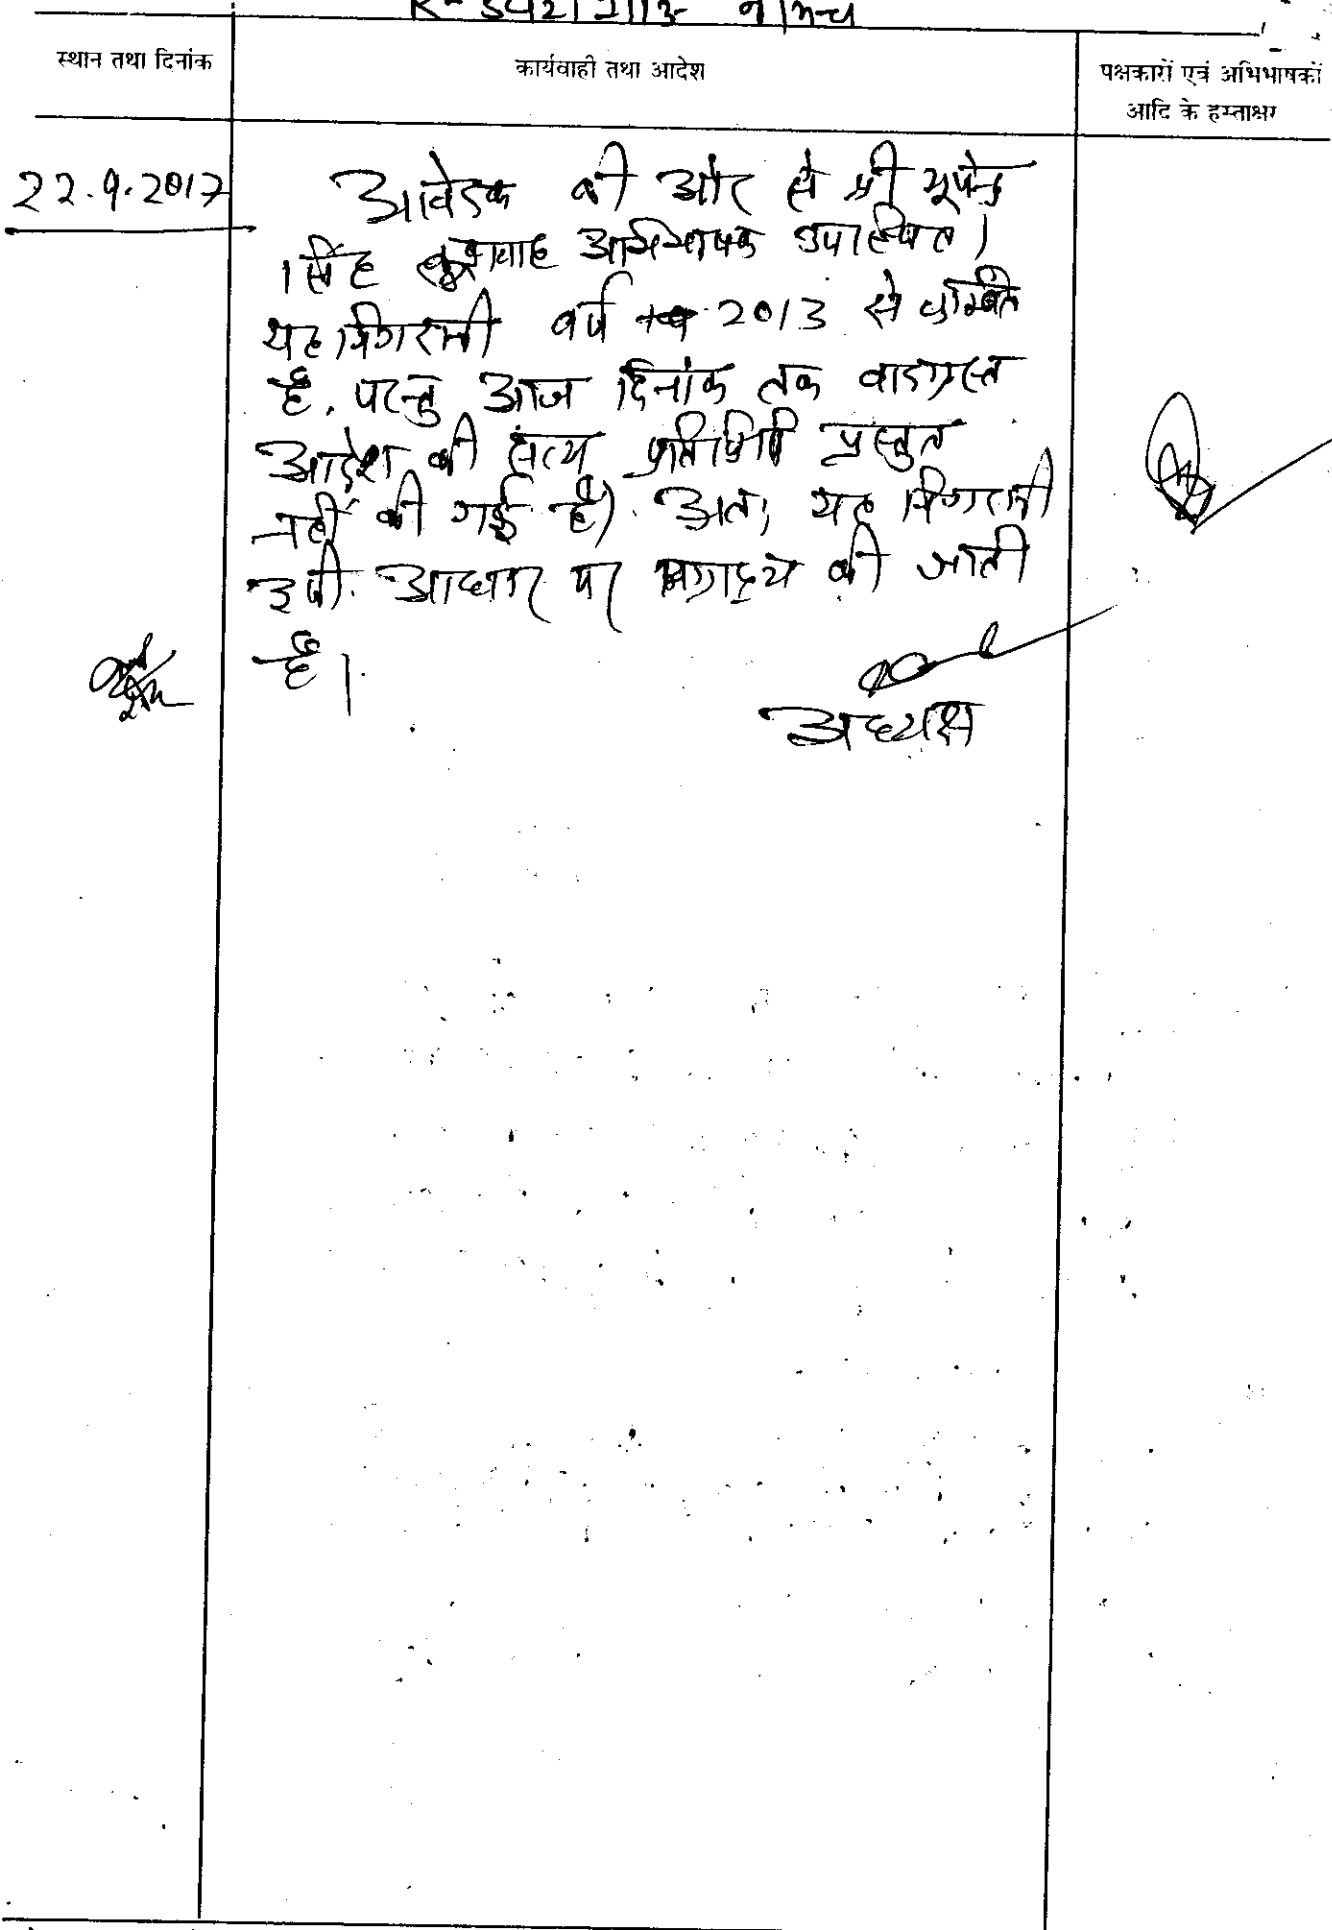 स्थान तथा दिनांक
कार्यवाही तथा आदेश
पक्षकारों एवं अभिभाषकों
आदि के हस्ताक्षर
22.9.2017
आवेदक की ओर से श्री भूपेन्द्र
सिंह कुशवाह अभिभाषक उपस्थित।
यह निगरानी वर्ष 2013 से लम्बित
है, परन्तु आज दिनांक तक वादग्रस्त
आदेश की सत्य प्रतिलिपि प्रस्तुत
नहीं की गई है। अतः यह निगरानी
इसी आधार पर अग्राह्य की जाती
है।
अध्यक्ष